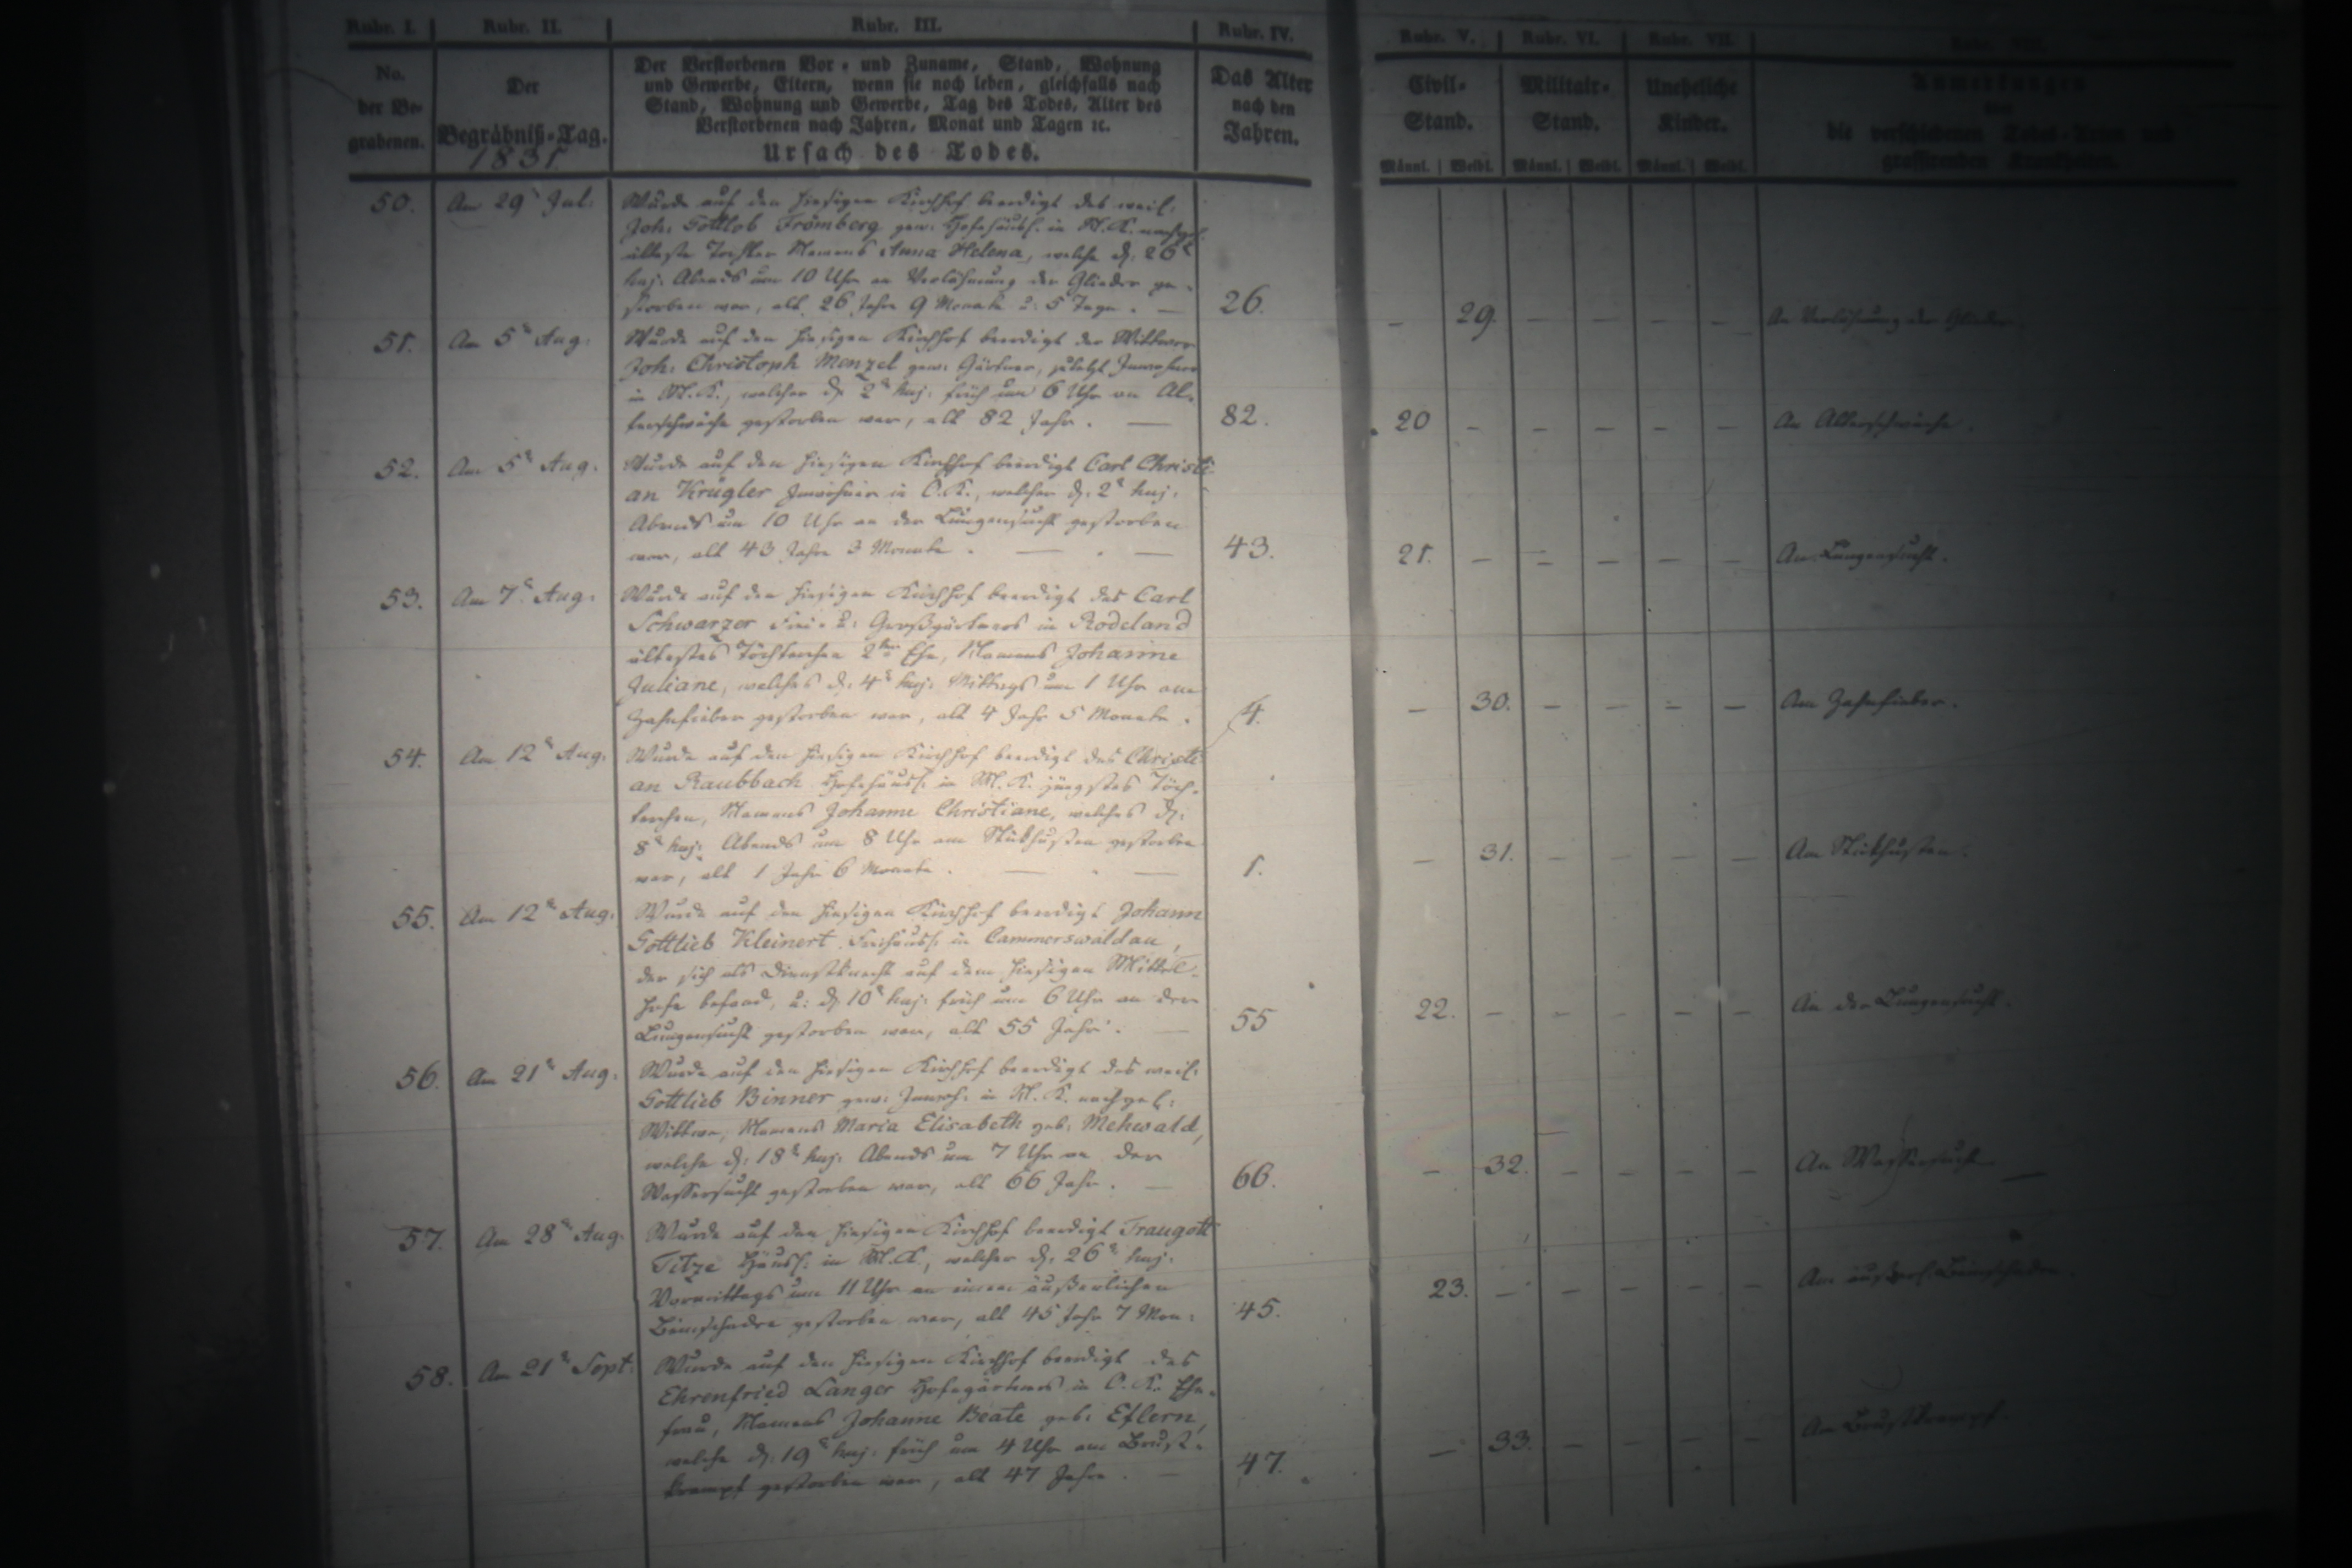 Rubr. I. Rubr. II. Rubr. III. Rubr. IV. Rubr. V. Rubr. VI. Rubr. VII.
No. der Begrabenen.
Der Begräbniß-Tag.
1831.
Der Verstorbenen Vor- und Zuname, Stand, Wohnung
und Gewerbe, Eltern, wenn sie noch leben, gleichfalls nach
Stand, Wohnung und Gewerbe, Tag des Todes, Alter des
Verstorbenen nach Jahren, Monat und Tagen ꝛc.
Ursach des Todes.
Das Alter
nach den
Jahren.
Civil-
Stand.
Männl. Weibl.
Militair-
Stand.
Männl. Weibl.
Uneheliche
Kinder.
Männl. Weibl.
Anmerkungen
die verschiedenen Todes-Arten und
grassirenden Krankheiten.
50. Am 29t Jul: Wurde auf den hiesigen Kirchhof beerdigt des weil:
Joh: Gottlob Frömberg gew: Hofehäusl: in M. K. nachgel.
älteste Tochter Namens Anna Helena, welche d: 26t
huj: Abends um 10 Uhr an Verlähmung der Glieder ge-
storben war, alt 26 Jahre 9 Monate u: 5 Tage. — 26. — 29. — — — — An Verlähmung der Glieder
51. Am 5t Aug: Wurde auf den hiesigen Kirchhof beerdigt der Wittwer
Joh: Christoph Menzel gew: Gärtner, zuletzt Inwohner
in M. K., welcher d: 2t huj: früh um 6 Uhr an Al-
terschwäche gestorben war, alt 82 Jahr. — 82. 20 — — — — — An Alterschwäche.
52. Am 5t Aug. Wurde auf den hiesigen Kirchhof beerdigt Carl Christi-
an Krügler Inwohner in O. K., welcher d: 2t huj:
Abends um 10 Uhr an der Lungensucht gestorben
war, alt 43 Jahre 3 Monate. — — 43. 21. — — — — — An Lungensucht.
53. Am 7t Aug: Wurde auf den hiesigen Kirchhof beerdigt des Carl
Schwarzer Frei- u: Großgärtners in Rodeland
ältestes Töchterchen 2ter Ehe, Namens Johanne
Juliane, welches d: 4t huj: Mittags um 1 Uhr am
Zahnfieber gestorben war, alt 4 Jahr 5 Monate. 4. — 30. — — — — Am Zahnfieber.
54. Am 12t Aug: Wurde auf den hiesigen Kirchhof beerdigt des Christi-
an Raubbach Hofehäusl: in M. K. jüngstes Töch-
terchen, Namens Johanne Christiane, welches d:
8t huj: Abends um 8 Uhr am Stickhusten gestorben
war, alt 1 Jahr 6 Monate. — — 1. — 31. — — — — Am Stickhusten.
55. Am 12t Aug: Wurde auf den hiesigen Kirchhof beerdigt Johann
Gottlieb Kleinert Freihäusl: in Cammerswaldau,
der sich als Dienstknecht auf dem hiesigen Mittel-
hofe befand, u: d: 10t huj: früh um 6 Uhr an der
Lungensucht gestorben war, alt 55 Jahr. — 55 22. — — — — — An der Lungensucht.
56. Am 21t Aug: Wurde auf den hiesigen Kirchhof beerdigt des weil:
Gottlieb Binner gew: Inwoh: in M. K. nachgel:
Wittwe, Namens Maria Elisabeth geb: Mehwald,
welche d: 18t huj: Abends um 7 Uhr an der
Wassersucht gestorben war, alt 66 Jahr. — 66. — 32. — — — — An Wassersucht
57. Am 28t Aug: Wurde auf den hiesigen Kirchhof beerdigt Traugott
Titze Häusl: in M. K., welcher d: 26t huj:
Vormittags um 11 Uhr an einem äußerlichen
Beinschaden gestorben war, alt 45 Jahr 7 Mon: 45. 23. — — — — — Am äußerl: Beinschaden.
58. Am 21t Sept: Wurde auf den hiesigen Kirchhof beerdigt des
Ehrenfried Langer Hofegärtners in O. K. Ehe-
frau, Namens Johanne Beate geb: Eflern,
welche d: 19t huj: früh um 4 Uhr am Brust-
krampf gestorben war, alt 47 Jahre. — 47. — 33. — — — — Am Brustkrampf.